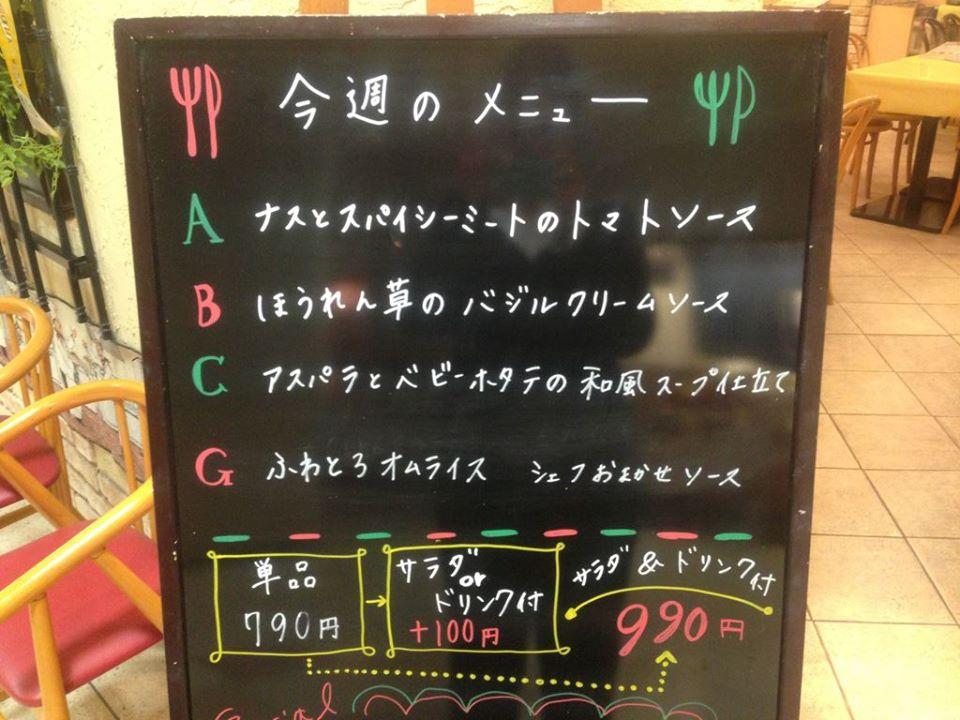 今週のメニュー
A ナスとスパイシーミートのトマトソース
B ほうれん草のバジルクリームソース
C アスパラとベビーホタテの和風スープ仕立て
G ふわとろオムライス シェフおまかせソース
単品
790円
→
サラダ
or
ドリンク付
+100円
サラダ&ドリンク付
990円
Special